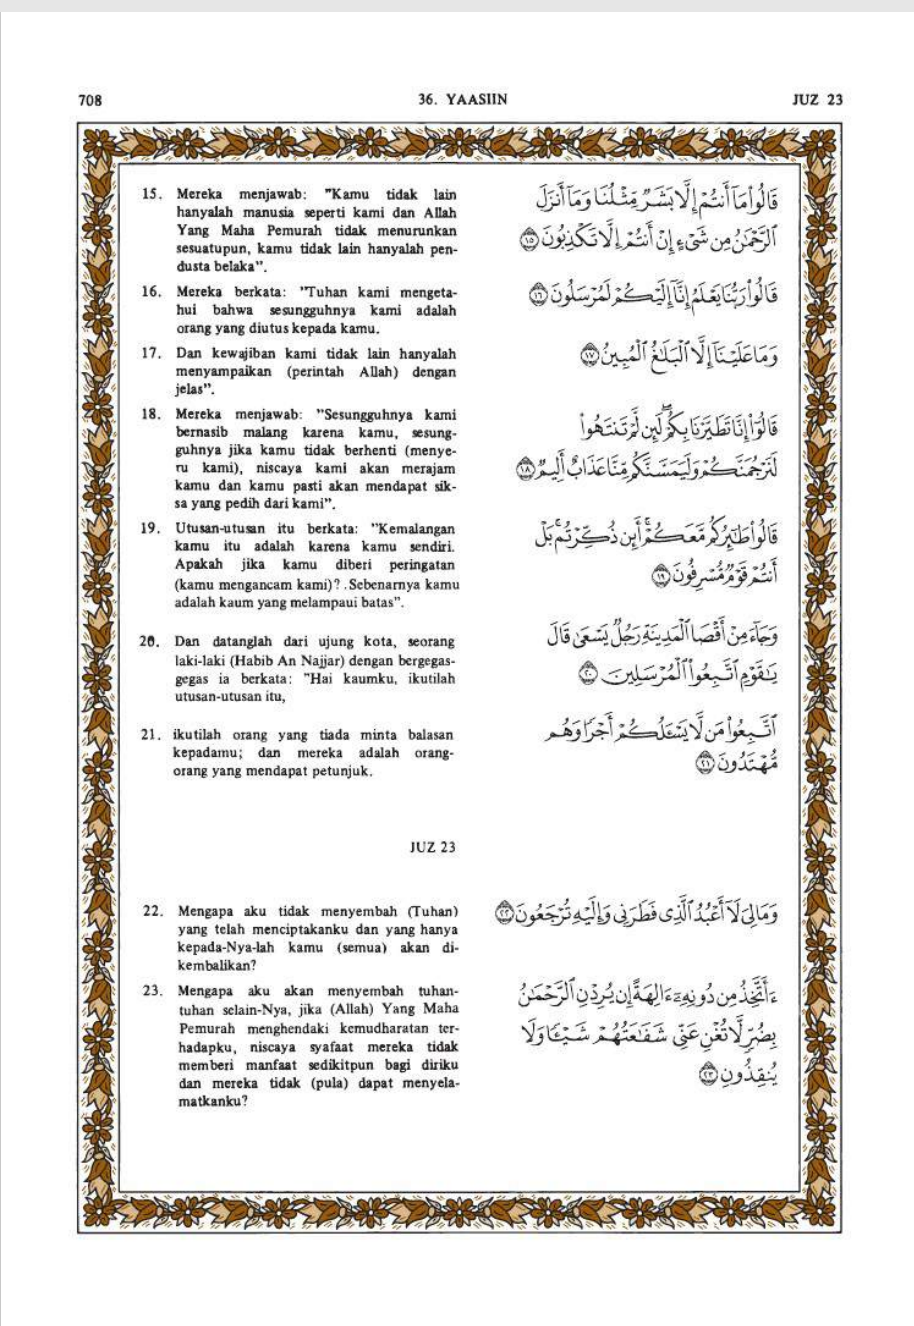 708 36. YAASIIN JUZ 23
15. Mereka menjawab: "Kamu tidak lain
hanyalah manusia seperti kami dan Allah
Yang Maha Pemurah tidak menurunkan
sesuatupun, kamu tidak lain hanyalah pen-
dusta belaka".
قَالُوا۟ مَآ أَنتُمْ إِلَّا بَشَرٌ مِّثْلُنَا وَمَآ أَنزَلَ
ٱلرَّحْمَٰنُ مِن شَىْءٍ إِنْ أَنتُمْ إِلَّا تَكْذِبُونَ ۝١٥
16. Mereka berkata: "Tuhan kami mengeta-
hui bahwa sesungguhnya kami adalah
orang yang diutus kepada kamu.
قَالُوا۟ رَبُّنَا يَعْلَمُ إِنَّآ إِلَيْكُمْ لَمُرْسَلُونَ ۝١٦
17. Dan kewajiban kami tidak lain hanyalah
menyampaikan (perintah Allah) dengan
jelas".
وَمَا عَلَيْنَآ إِلَّا ٱلْبَلَٰغُ ٱلْمُبِينُ ۝١٧
18. Mereka menjawab: "Sesungguhnya kami
bernasib malang karena kamu, sesung-
guhnya jika kamu tidak berhenti (menye-
ru kami), niscaya kami akan merajam
kamu dan kamu pasti akan mendapat sik-
sa yang pedih dari kami".
قَالُوٓا۟ إِنَّا تَطَيَّرْنَا بِكُمْ ۖ لَئِن لَّمْ تَنتَهُوا۟
لَنَرْجُمَنَّكُمْ وَلَيَمَسَّنَّكُم مِّنَّا عَذَابٌ أَلِيمٌ ۝١٨
19. Utusan-utusan itu berkata: "Kemalangan
kamu itu adalah karena kamu sendiri.
Apakah jika kamu diberi peringatan
(kamu mengancam kami)? . Sebenarnya kamu
adalah kaum yang melampaui batas".
قَالُوا۟ طَٰٓئِرُكُم مَّعَكُمْ ۚ أَئِن ذُكِّرْتُم ۚ بَلْ
أَنتُمْ قَوْمٌ مُّسْرِفُونَ ۝١٩
20. Dan datanglah dari ujung kota, seorang
laki-laki (Habib An Najjar) dengan bergegas-
gegas ia berkata: "Hai kaumku, ikutilah
utusan-utusan itu,
وَجَآءَ مِنْ أَقْصَا ٱلْمَدِينَةِ رَجُلٌ يَسْعَىٰ قَالَ
يَٰقَوْمِ ٱتَّبِعُوا۟ ٱلْمُرْسَلِينَ ۝٢٠
21. ikutilah orang yang tiada minta balasan
kepadamu; dan mereka adalah orang-
orang yang mendapat petunjuk.
ٱتَّبِعُوا۟ مَن لَّا يَسْـَٔلُكُمْ أَجْرًا وَهُم
مُّهْتَدُونَ ۝٢١
JUZ 23
22. Mengapa aku tidak menyembah (Tuhan)
yang telah menciptakanku dan yang hanya
kepada-Nya-lah kamu (semua) akan di-
kembalikan?
وَمَا لِىَ لَآ أَعْبُدُ ٱلَّذِى فَطَرَنِى وَإِلَيْهِ تُرْجَعُونَ ۝٢٢
23. Mengapa aku akan menyembah tuhan-
tuhan selain-Nya, jika (Allah) Yang Maha
Pemurah menghendaki kemudharatan ter-
hadapku, niscaya syafaat mereka tidak
memberi manfaat sedikitpun bagi diriku
dan mereka tidak (pula) dapat menyela-
matkanku?
ءَأَتَّخِذُ مِن دُونِهِۦٓ ءَالِهَةً إِن يُرِدْنِ ٱلرَّحْمَٰنُ
بِضُرٍّ لَّا تُغْنِ عَنِّى شَفَٰعَتُهُمْ شَيْـًٔا وَلَا
يُنقِذُونِ ۝٢٣